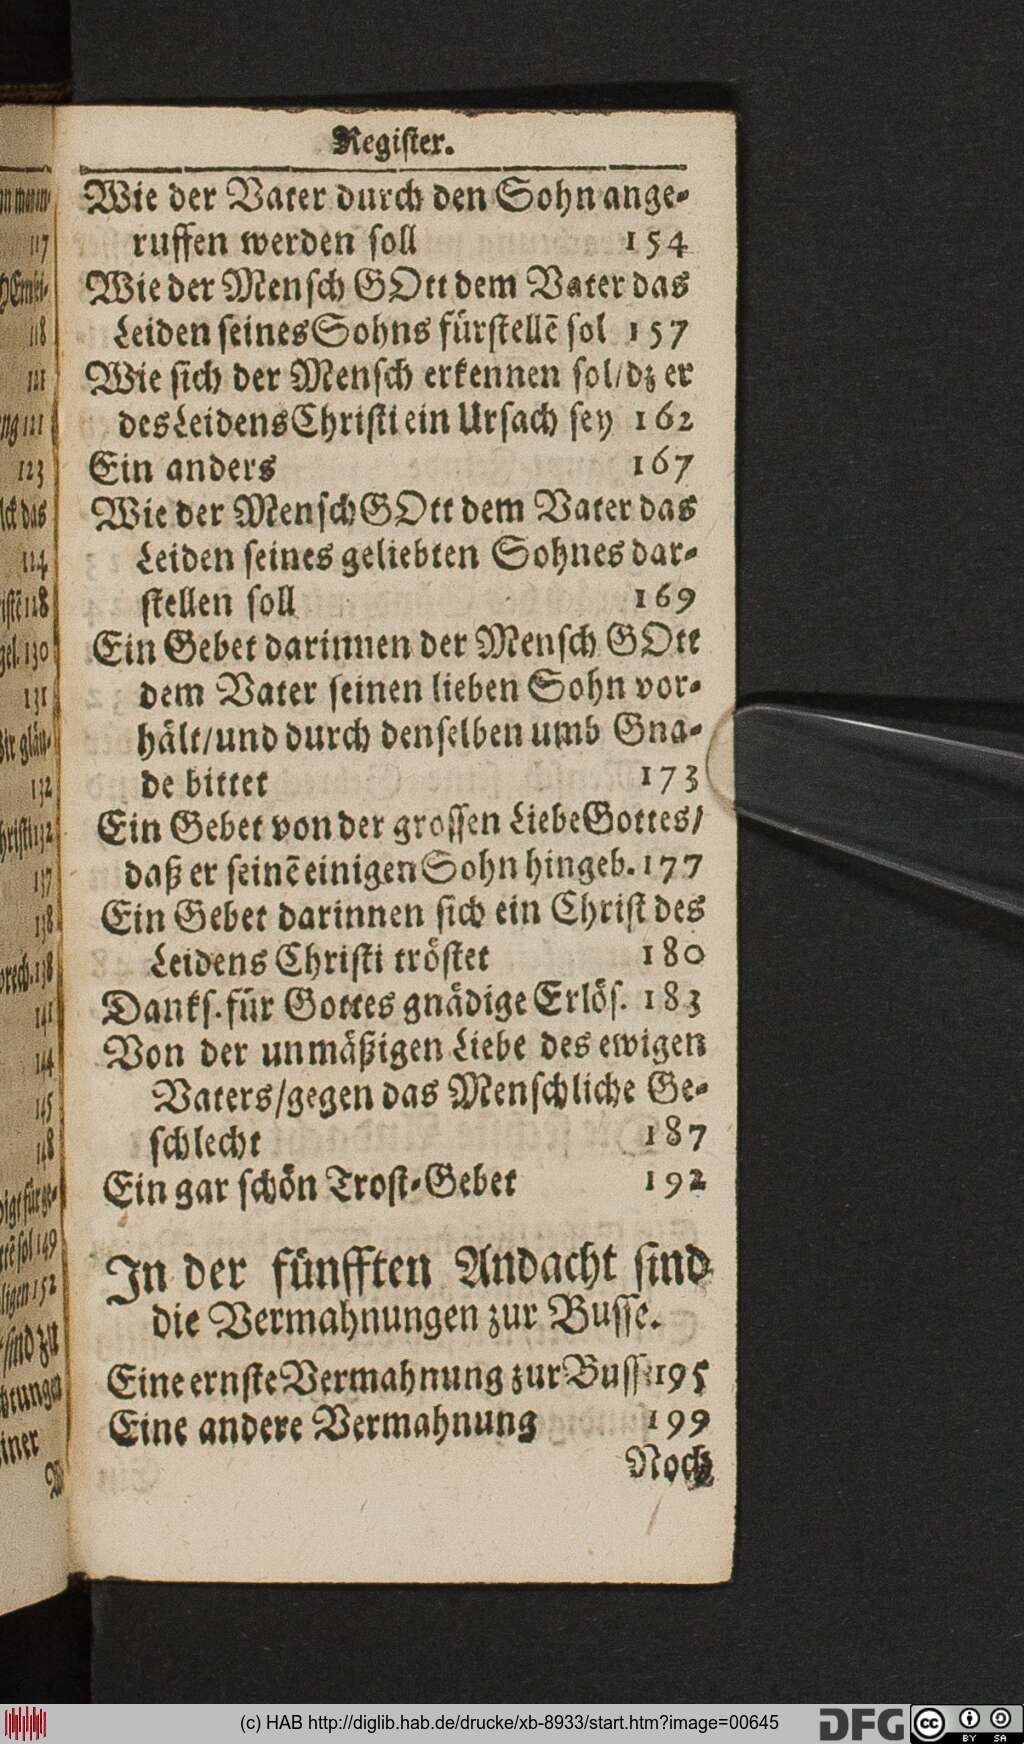 Register.
Wie der Vater durch den Sohn ange-
ruffen werden soll 154
Wie der Mensch GOtt dem Vater das
Leiden seines Sohns fürstellē sol 157
Wie sich der Mensch erkennen sol/dz er
des Leidens Christi ein Ursach sey 162
Ein anders 167
Wie der Mensch GOtt dem Vater das
Leiden seines geliebten Sohnes dar-
stellen soll 169
Ein Gebet darinnen der Mensch GOtt
dem Vater seinen lieben Sohn vor-
hält/und durch denselben umb Gna-
de bittet 173
Ein Gebet von der grossen Liebe Gottes/
daß er seinē einigen Sohn hingeb. 177
Ein Gebet darinnen sich ein Christ des
Leidens Christi tröstet 180
Danks. für Gottes gnädige Erlös. 183
Von der unmäßigen Liebe des ewigen
Vaters/gegen das Menschliche Ge-
schlecht 187
Ein gar schön Trost-Gebet 192
In der fünfften Andacht sind
die Vermahnungen zur Busse.
Eine ernste Vermahnung zur Busse 195
Eine andere Vermahnung 199
Noch
117
118
121
123
124
131
132
137
138
141
144
145
148
(c) HAB http://diglib.hab.de/drucke/xb-8933/start.htm?image=00645
DFG
CC BY SA